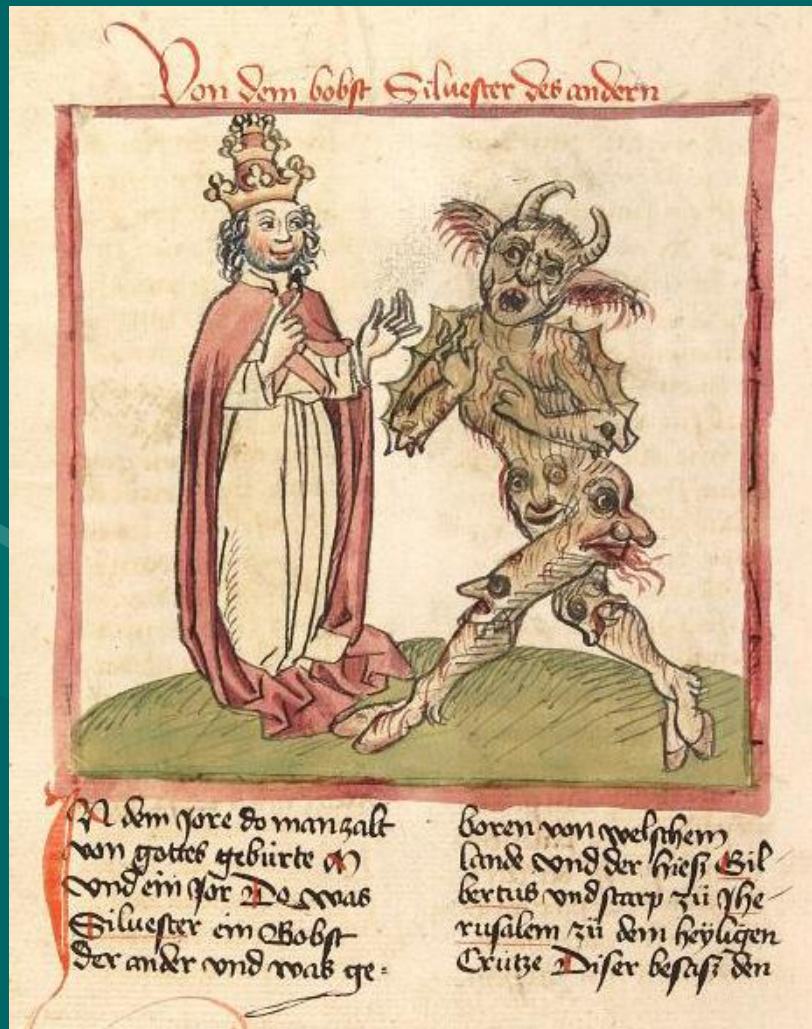 Von dem bobst Siluester des andern
IN dem Jore do man zalt
von gottes gebürte M
vnd ein Jor Do was
Siluester ein Bobst
der ander vnd was ge-
boren von welschem
lande vnd der hiesz Gil
bertus vnd starp zü Jhe-
rusalem zü dem heyligen
Crütze Diser besasz den